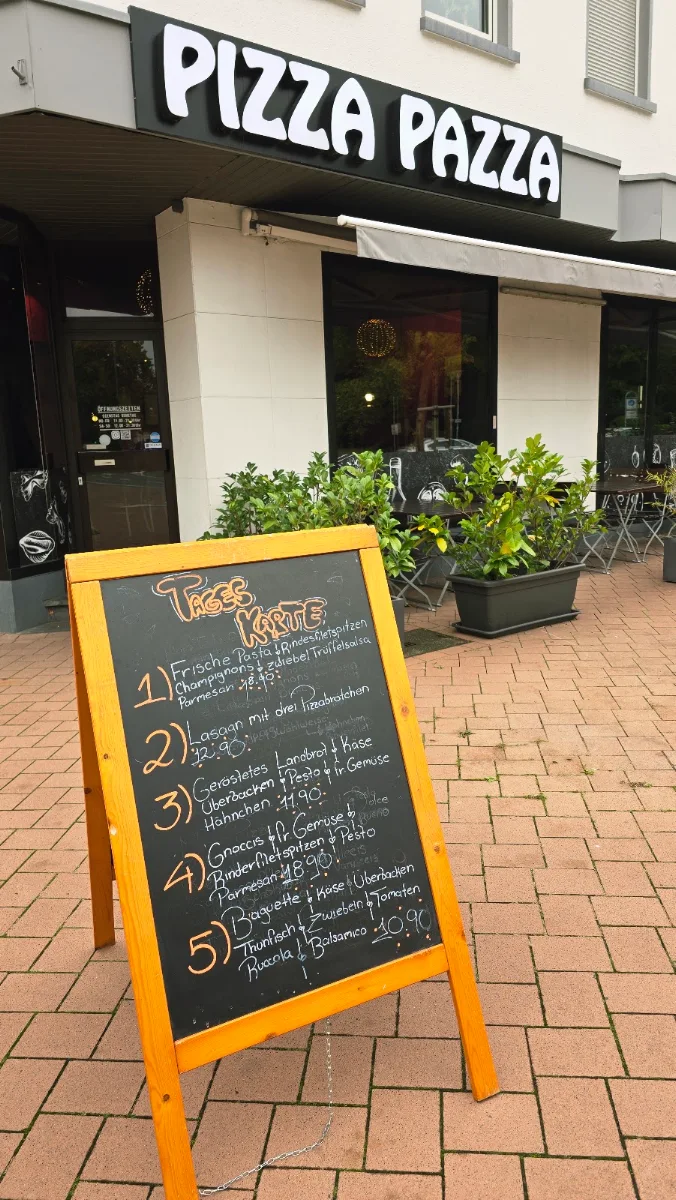 PIZZA PAZZA
ÖFFNUNGSZEITEN
TAGES
KARTE
1) Frische Pasta Rindesfiletspitzen
Champignons Zwiebel Trüffelsalsa
Parmesan 18.90
2) Lasagn mit drei Pizzabrötchen
12.90
3) Geröstetes Landbrot Käse
Überbacken Pesto fr Gemüse
Hähnchen 11.90
4) Gnoccis fr Gemüse
Rinderfiletspitzen Pesto
Parmesan 18.90
5) Baguette Käse Überbacken
Thunfisch Zwiebeln Tomaten
Ruccola Balsamico 10.90